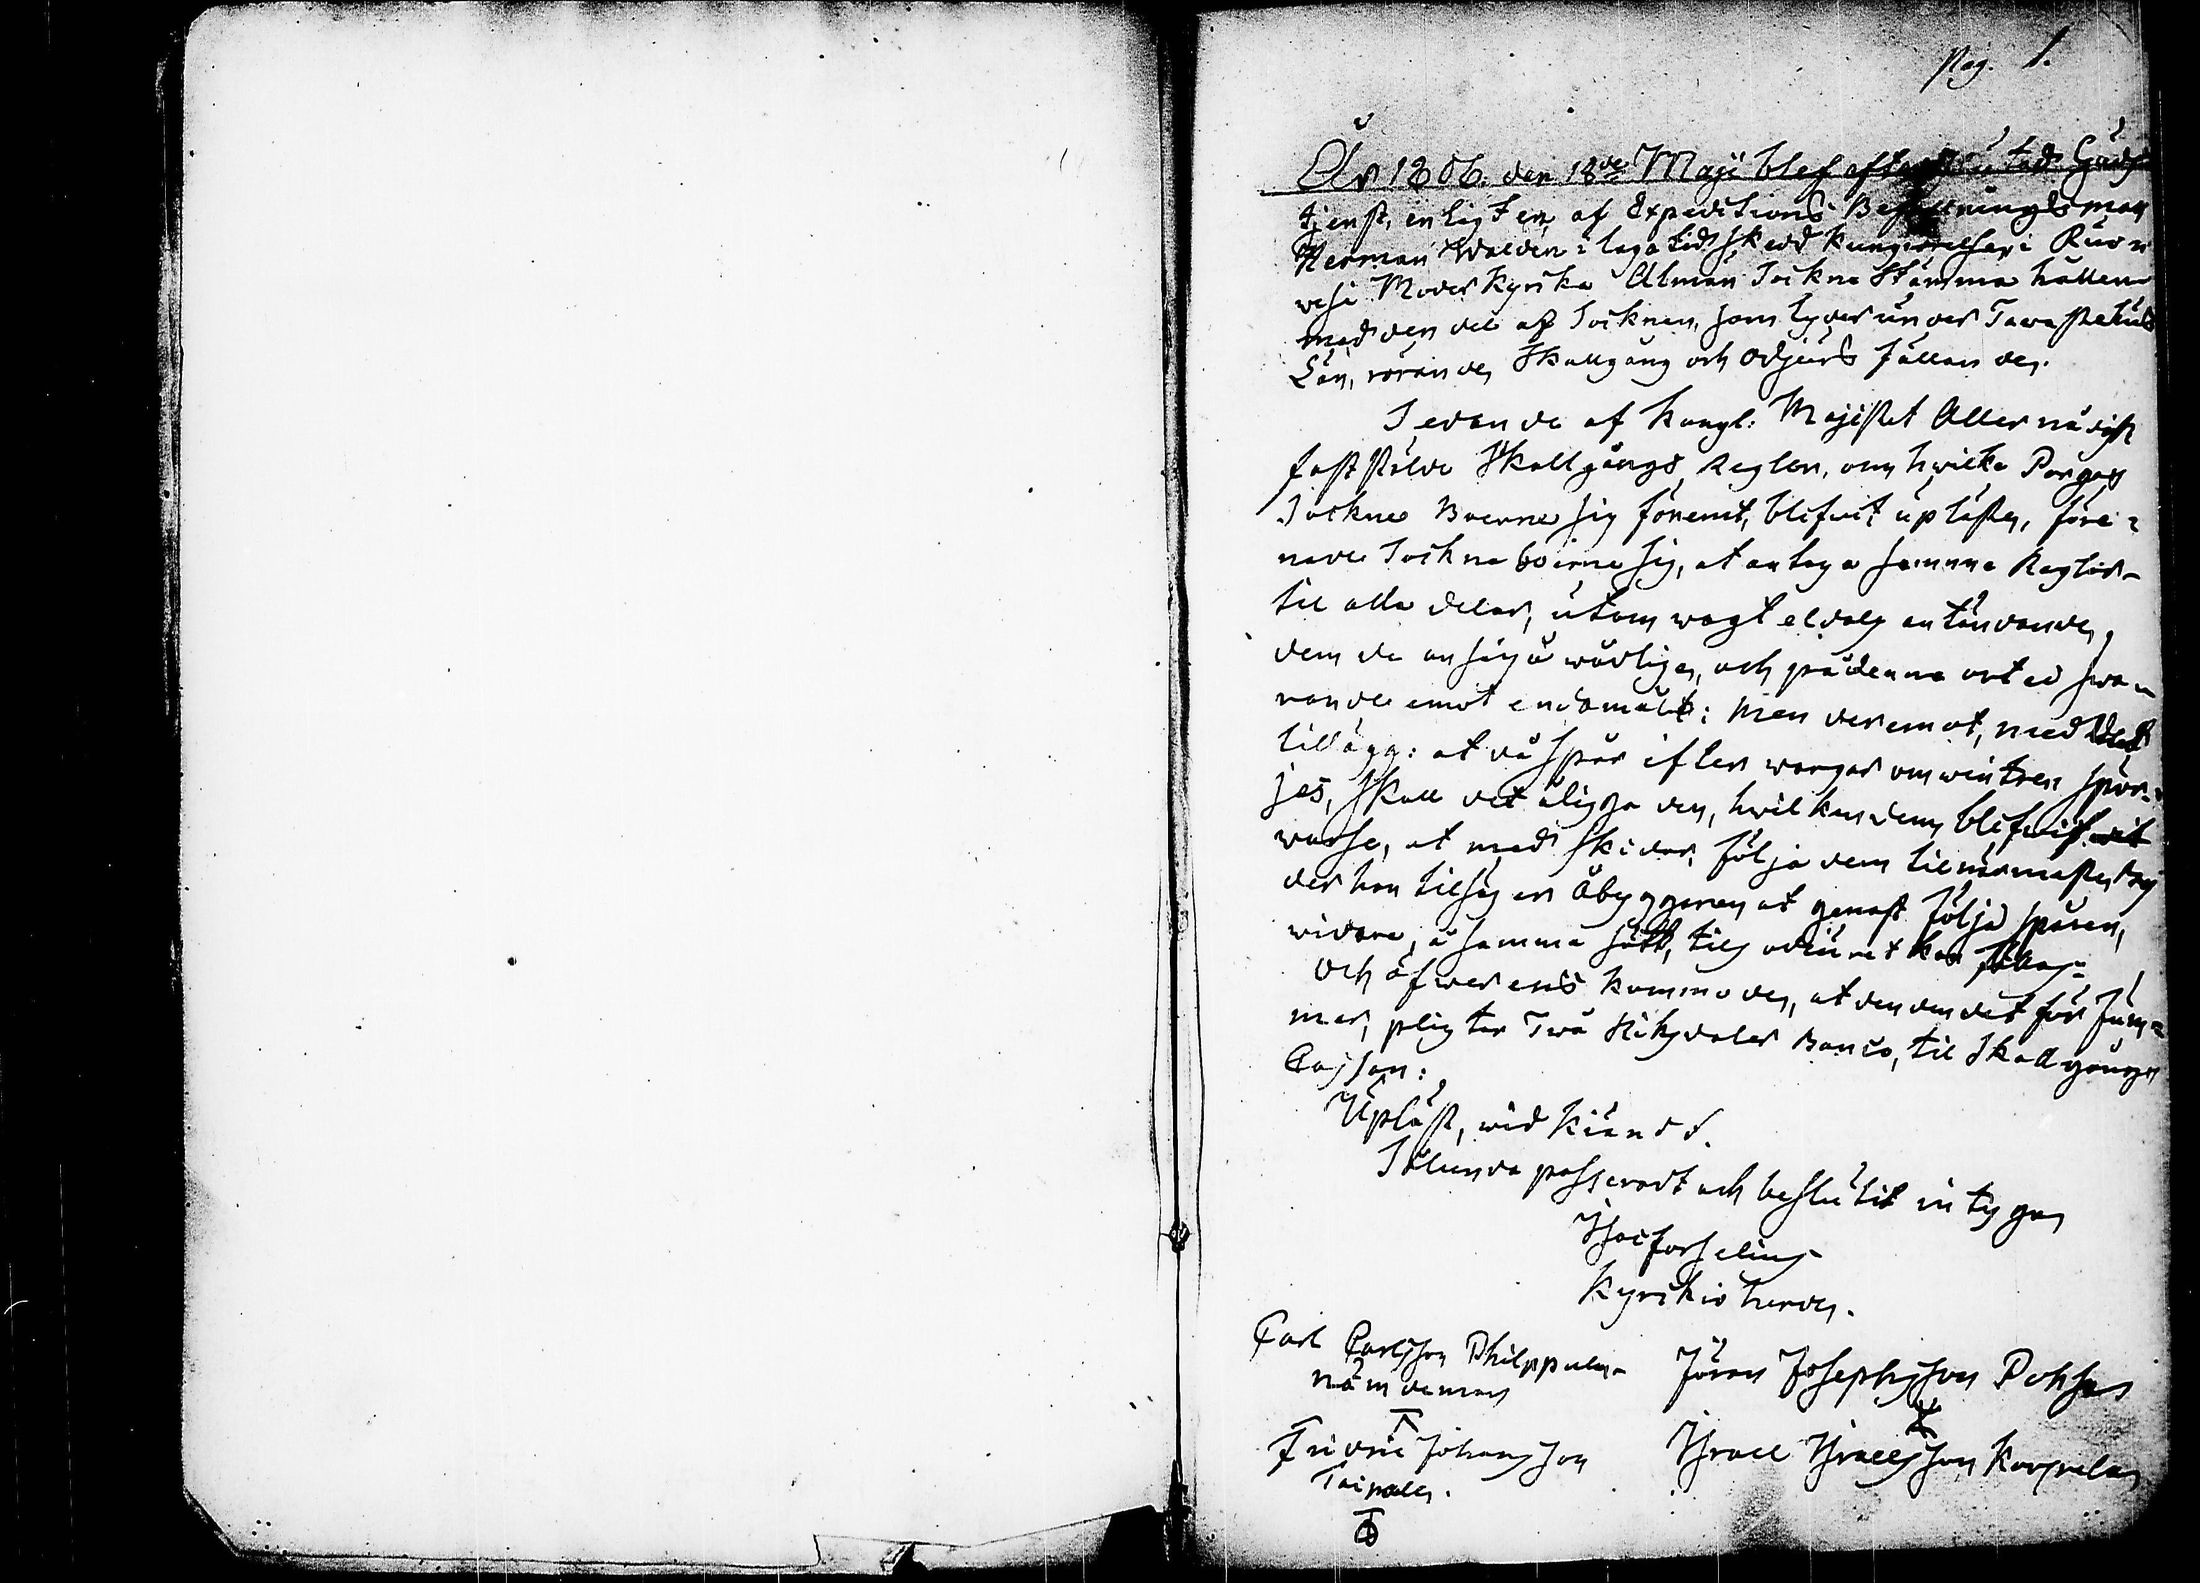 Pag. 1.
År 1806. den 18de Maji blef efter slutad Guds
tjenst, enligt en af Expeditions Befallningsman
Herman Walden i laga tid skedd kungiörelse, i Ruo-
wesi Moderkyrka Alman Sockne Stämma hållen
med den del af Socknen, som lyder under Tawastehus
Län, rörande Skallgång och Odjurs fällande.
Sedan de af Kongl: Majestet Allernådigst
faststälde Skallgångs Reglor, om hwilka Pargas
Sockne Boerne sig förent, blifwit upläste, före-
nade Sockneboerne sig, at antaga samma Reglor
til alla delar, utom wagt eldars antändande,
dem de ansågo wådlige, och på denna ort ei swa-
rande emot endamålet: Men deremot, med det
tillägg: at då spår efter wargar om wintren spör-
jes, skall det åligga den, hwilken dem blifwit
warse, at med skidor, följa dem til närmaste By
der han tilsäger Åbyggaren at genast följa spåren,
widare, å samma sätt, tils odiuret kan fällas:
och öfwerens kommo de, at den som det försum-
mer, pligtar Twå Riksdaler Banco, til Skallgångs
Cassan:
Upläst, widkiändt.
Sålunda passeradt och beslutit intygar
Kyrkio herde.
Carl Carlsson Philppula
nämdeman
Jöran Josephsson Pohja
Fridric Johansson
Taipale.
Israel Israelsson Korpula